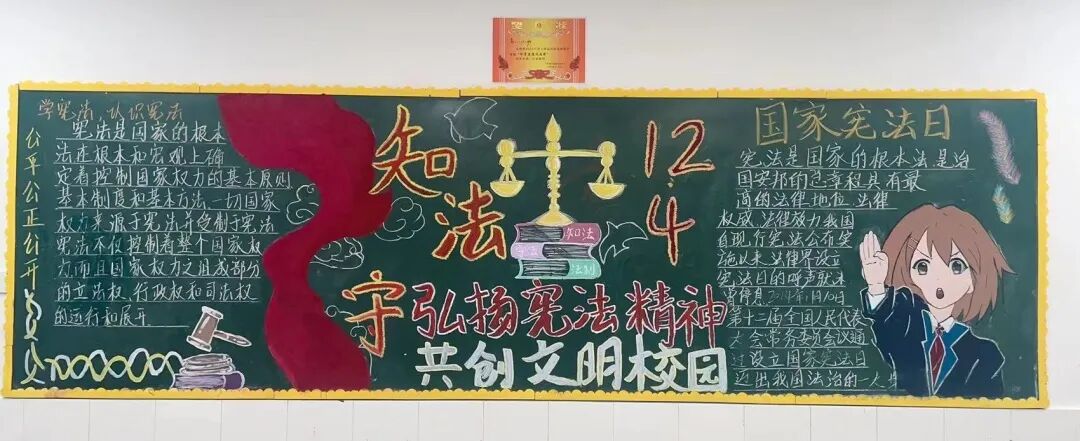 奖状
学宪法、认识宪法
公平公正公开
宪法是国家的根本
法在根本和宏观上确
定着控制国家权力的基本原则
基本制度和基本方法,一切国家
权力来源于宪法并受制于宪法
宪法不仅控制着整个国家权
力而且国家权力之组成部分
的立法权、行政权和司法权
的运行和展开
知法
守
12
4
知法
法制
弘扬宪法精神
共创文明校园
国家宪法日
宪法是国家的根本法是治
国安邦的总章程具有最
高的法律地位、法律
权威、法律效力我国
自现行宪法公布实
施以来,法律界设立
宪法日的呼声就未
第十二届全国人民代表
大会常务委员会议通
过设立国家宪法日
迈出我国法治的一大步